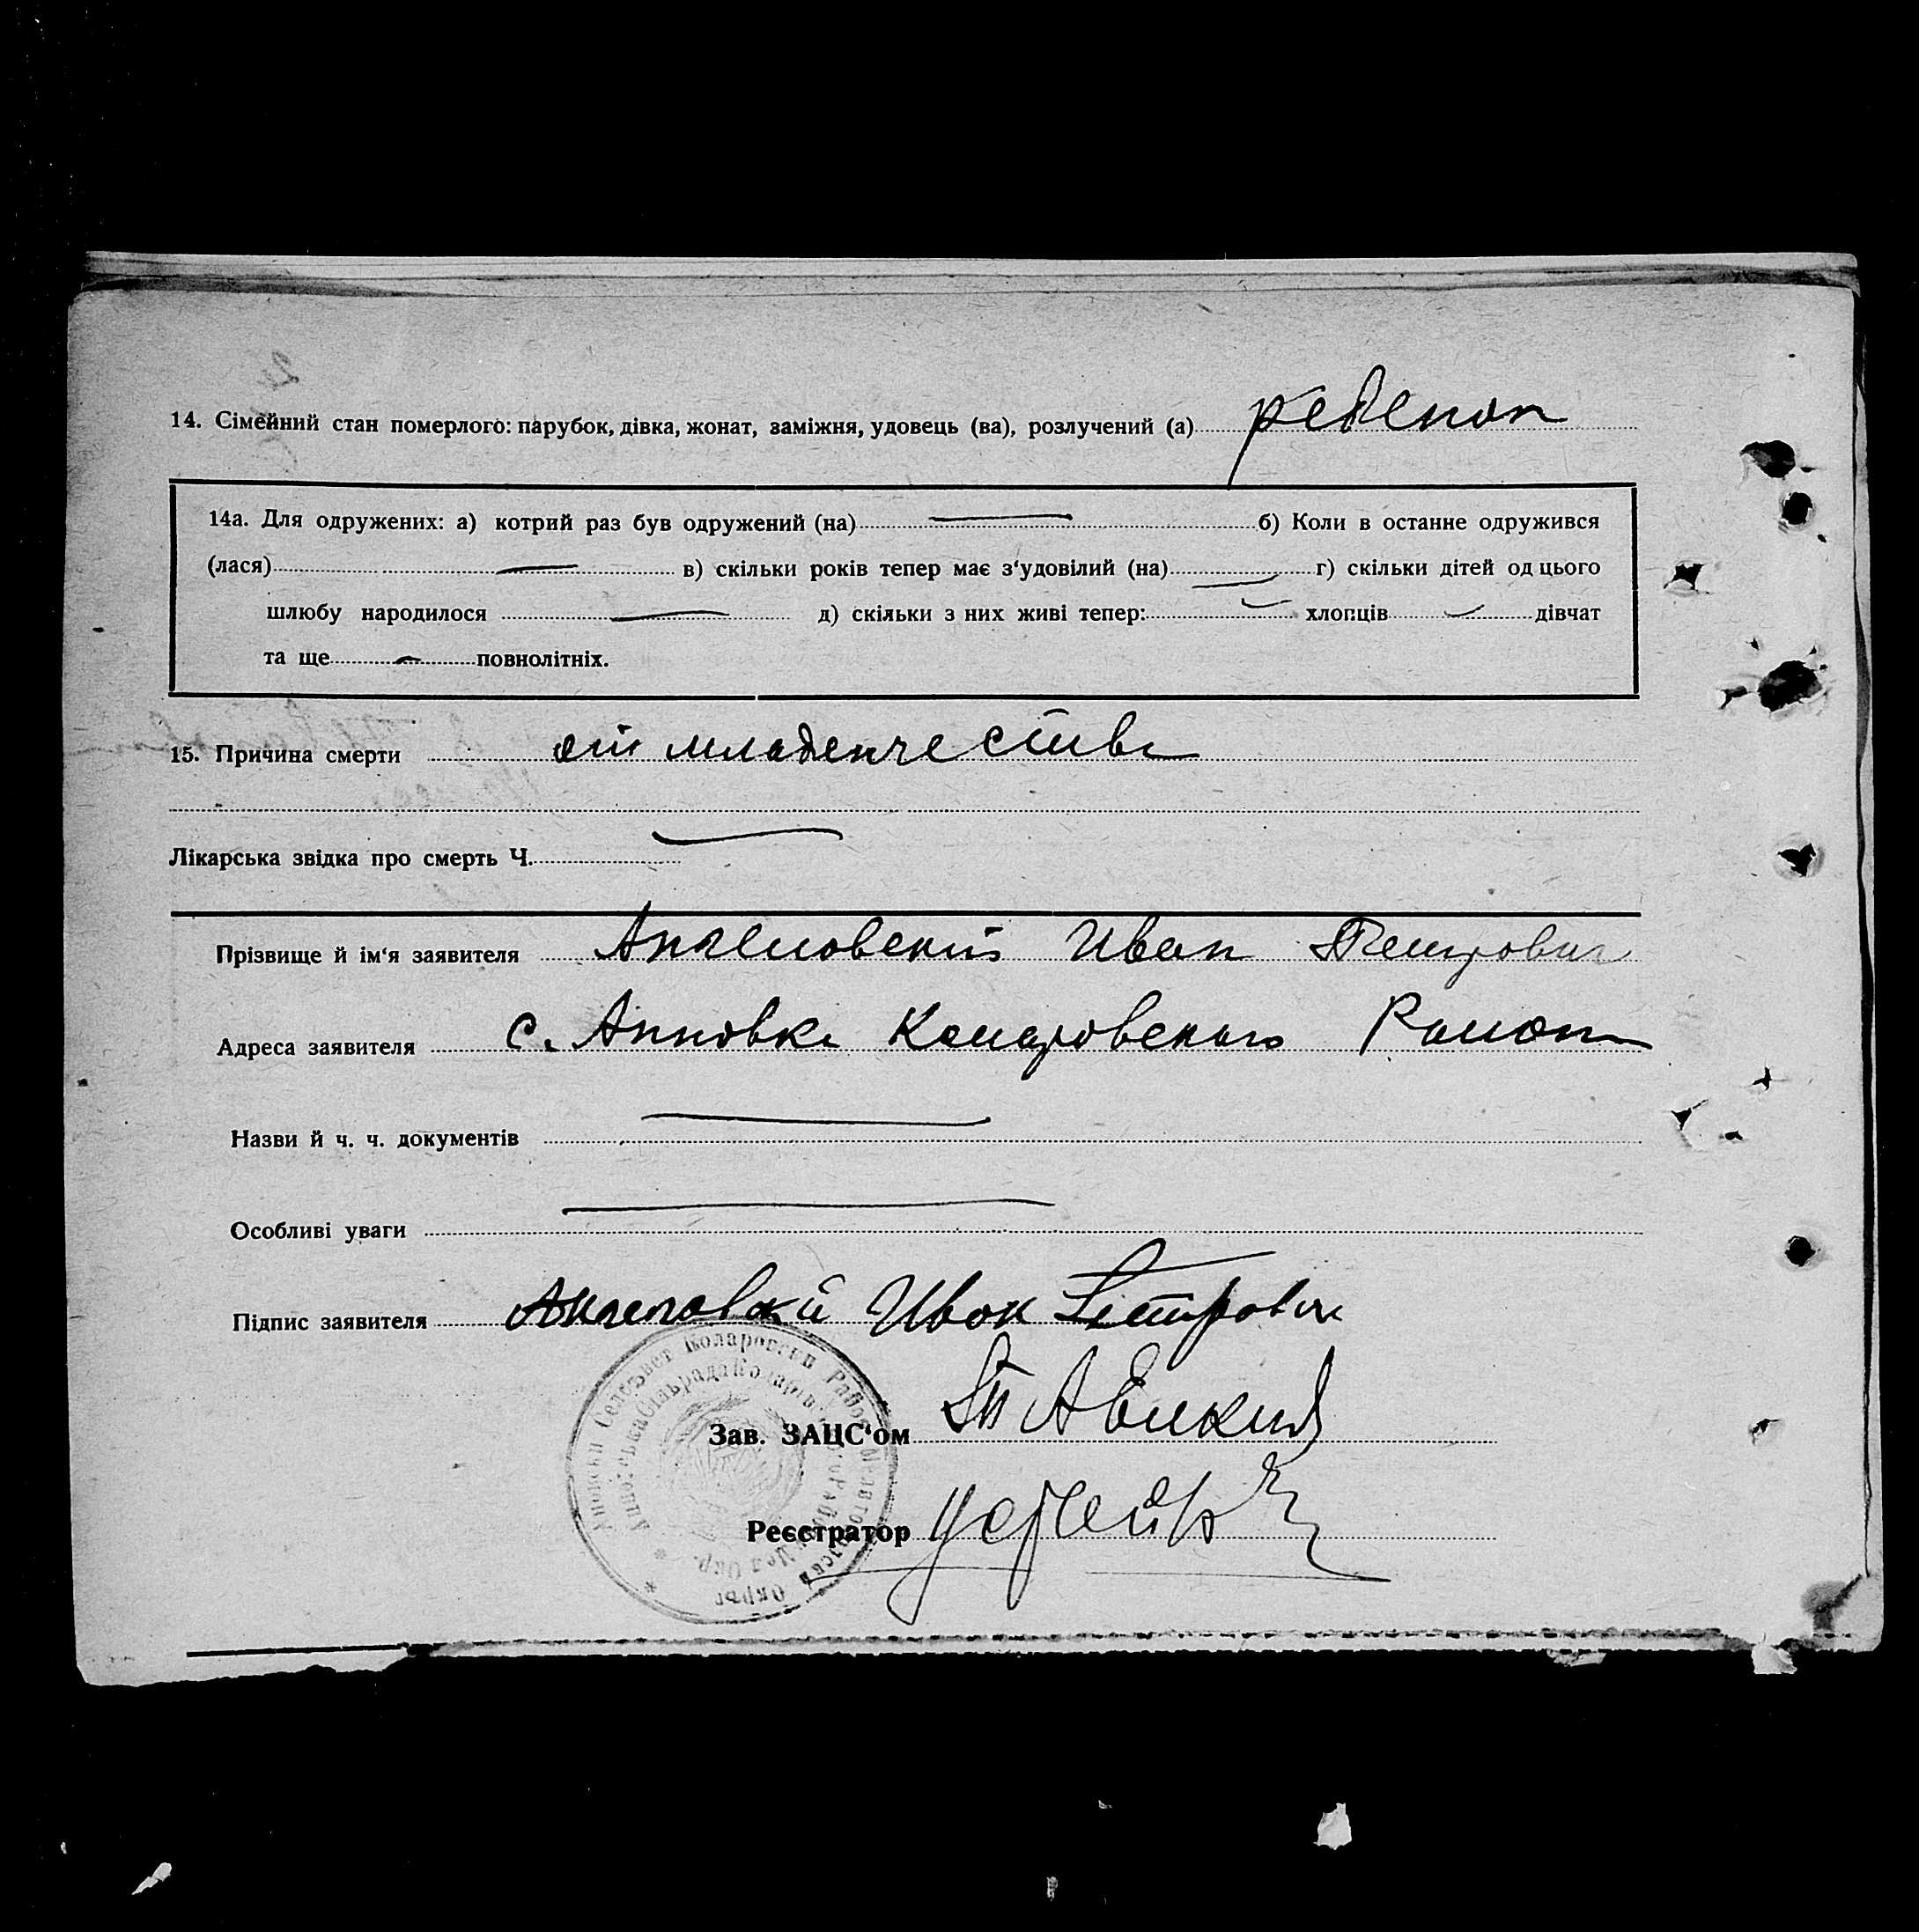 14. Сімейний стан померлого: парубок, дівка, жонат, заміжня, удовець (ва), розлучений (а) ребенок
14а. Для одружених: а) котрий раз був одружений (на) — б) Коли в останне одружився
(лася) — в) скільки років тепер має з'удовілий (на) — г) скільки дітей од цього
шлюбу народилося — д) скільки з них живі тепер: — хлопців — дівчат
та ще — повнолітніх.
15. Причина смерти от младенчества
Лікарська звідка про смерть Ч. —
Прізвище й ім'я заявителя Ангеловский Иван Петрович
Адреса заявителя с. Анновка Коларовского Район
Назви й ч. ч. документів —
Особливі уваги —
Підпис заявителя Ангеловский Иван Петрович
Зав. ЗАЦС'ом
Реєстратор
Селсъвет Коларовски Район
Сільрада